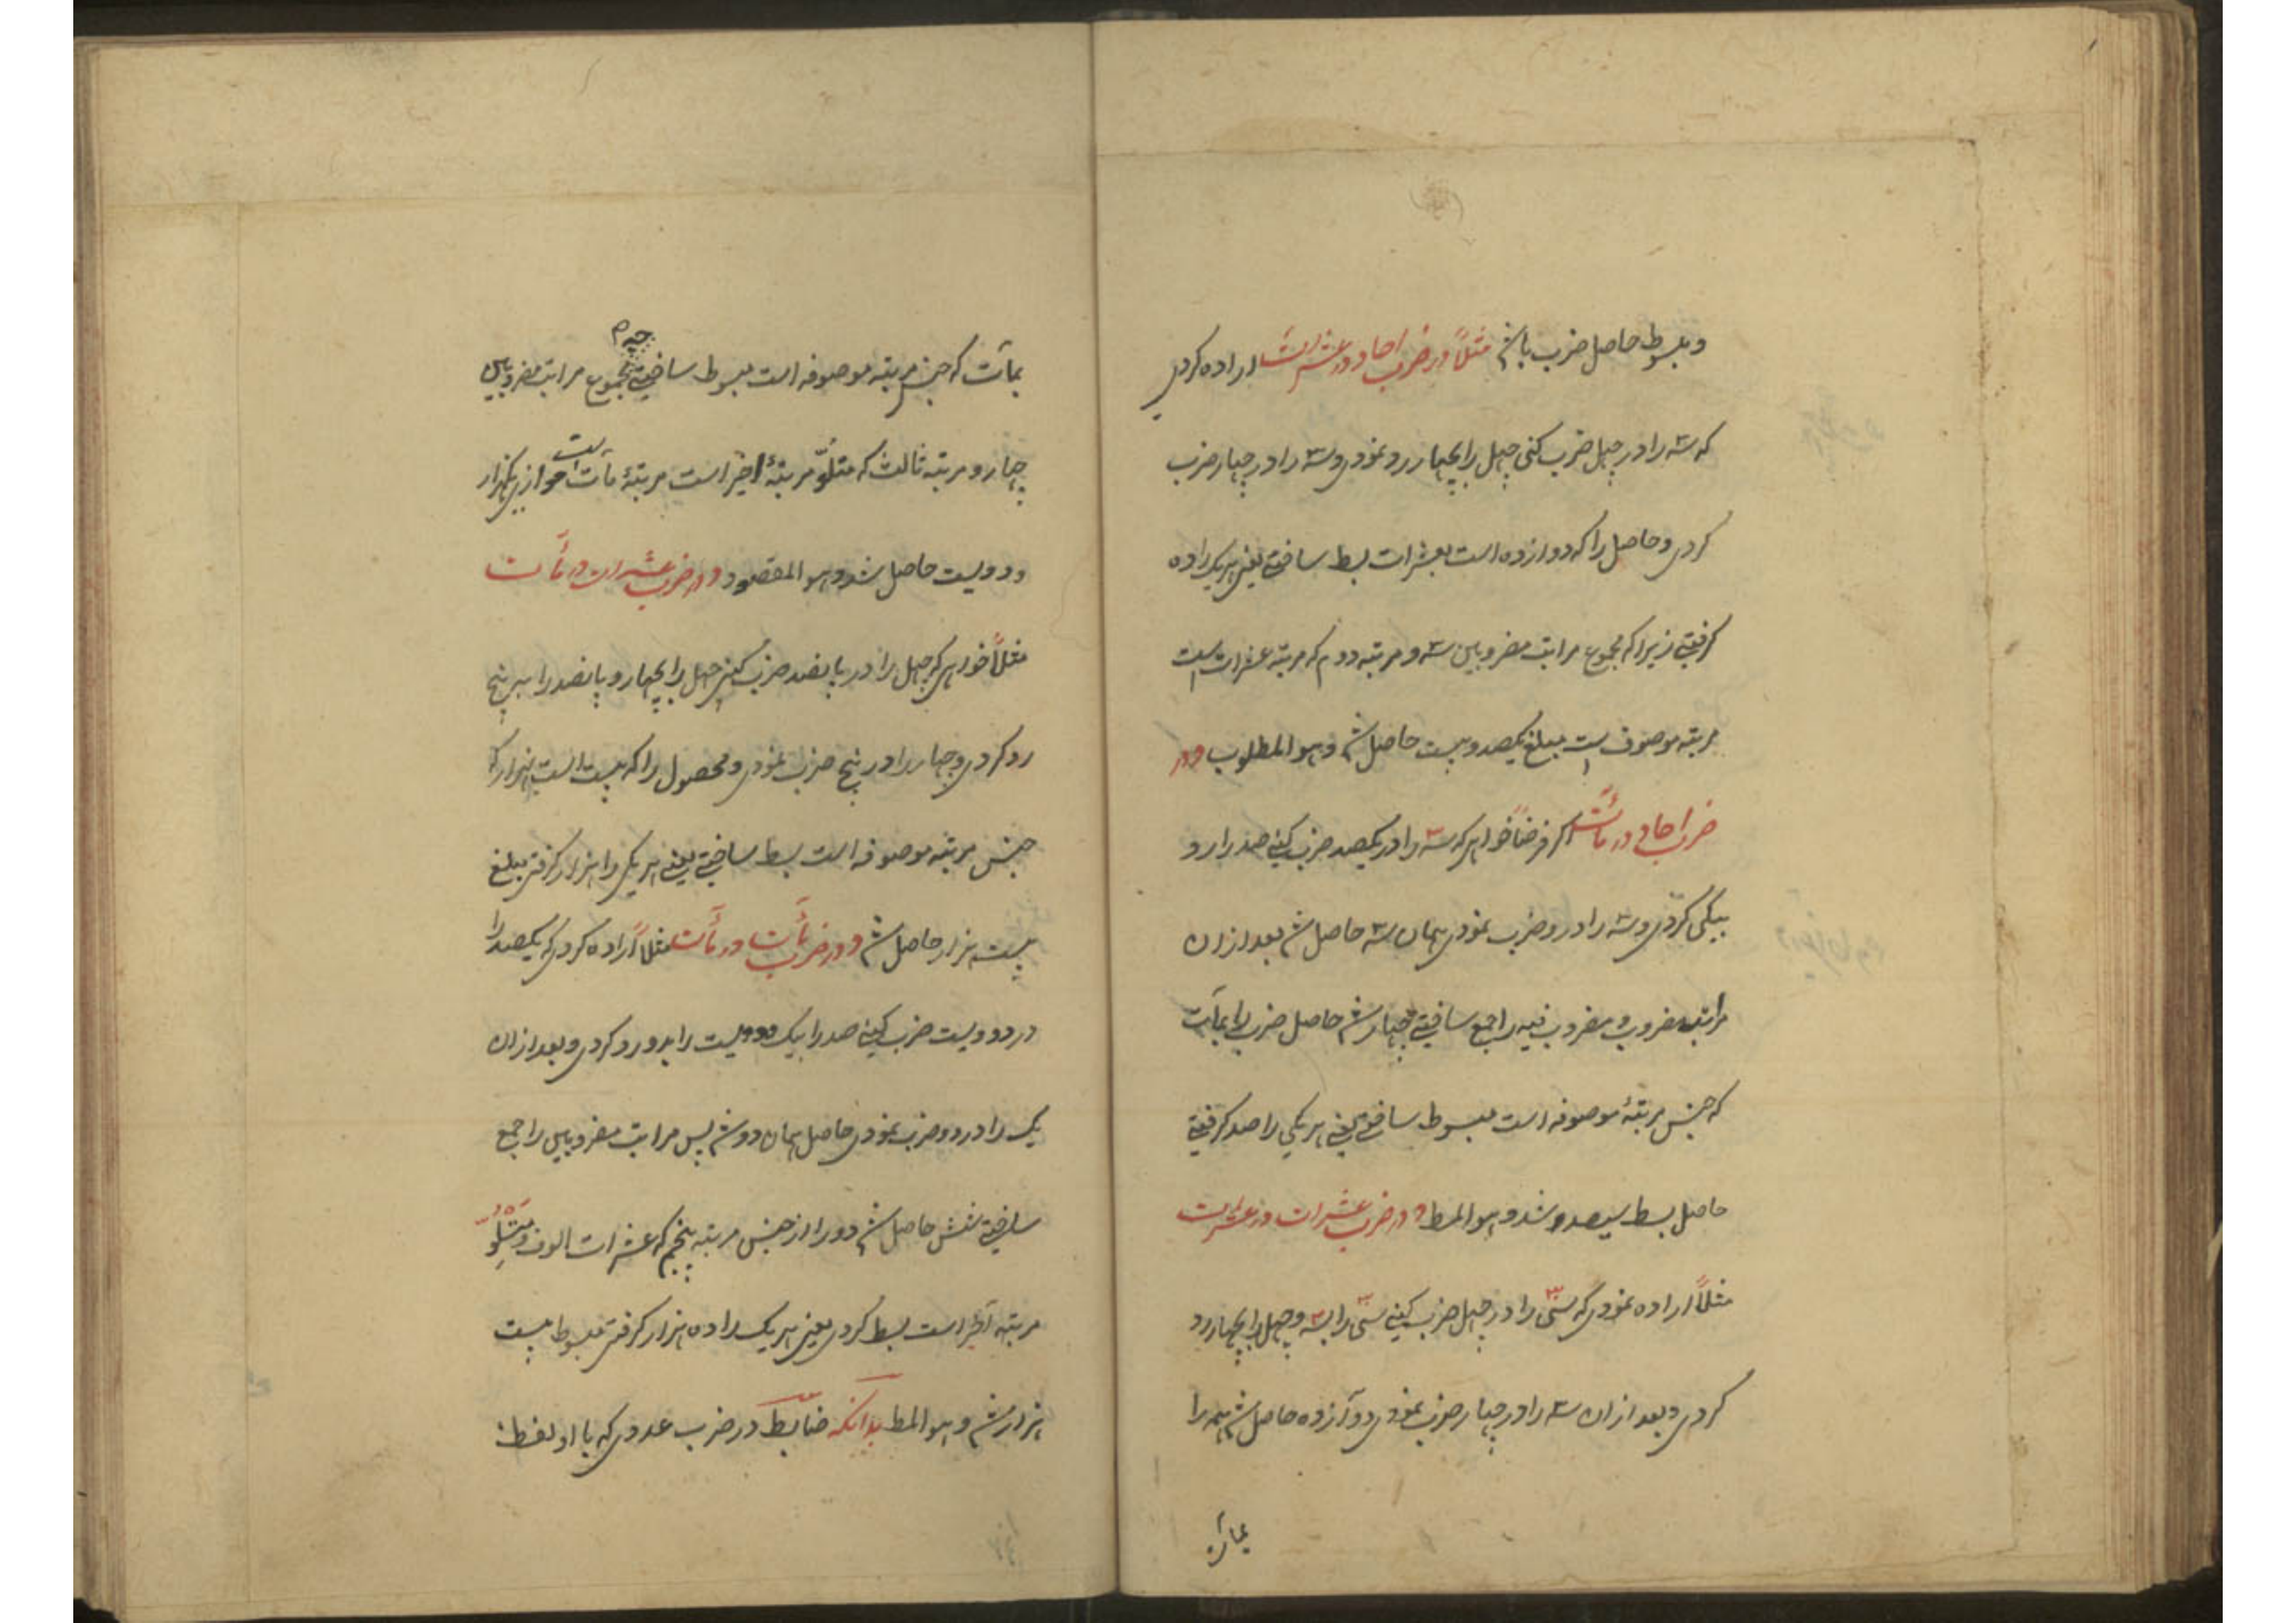 و مبسوط حاصل ضرب باشد مثلاً در ضرب احاد در عشرات اراده کردی
که سه را در چهل ضرب کنی چهل را بچهار رد نمودی و سه را در چهار ضرب
کردی و حاصل را که دوازده است بعشرات بسط ساختی یعنی هر یک را ده
گرفتی زیرا که مجموع مراتب مضروبین سه و مرتبه دوم که مرتبه عشرات است
مرتبه موصوف است مبلغ یکصد و بیست حاصل شد و هو المطلوب و در
ضرب احاد در مآت اگر فرضاً خواهی که سه را در یکصد ضرب کنی صد را رد
بیکی کردی و سه را در و ضرب نمودی همان سه حاصل شد بعد ازان
مراتب مضروب و مضروب فیه را جمع ساختی چهار شد حاصل ضرب را بمآت
که جنس مرتبهٔ موصوفه است مبسوط ساختی یعنی هر یکی را صد گرفتی
حاصل بسط سیصد و شد و هو المط و در ضرب عشرات در عشرات
مثلاً اراده نمودی که سی را در چهل ضرب کنی سی را بسه و چهل را بچهار رد
کردی و بعد ازان سه را در چهار ضرب نمودی دوازده حاصل شد همه را
بمآت
بمآت که جنس مرتبه موصوفه است مبسوط ساختی چه مجموع مراتب مضروبین
چهار و مرتبه ثالث که متلوّ مرتبهٔ اخیر است مرتبهٔ مآت است موازی یکهزار
و دویست حاصل شد و هو المقصود و در ضرب عشرات در مآت
مثلاً خواهی که چهل را در پانصد ضرب کنی چهل را بچهار و پانصد را به پنج
رد کردی و چهار را در پنج ضرب نمودی و محصول را که بیست است بهزار که
جنس مرتبه موصوفه است بسط ساختی یعنی هر یکی را هزار گرفتی مبلغ
بیست هزار حاصل شد و در ضرب مآت در مآت مثلاً اراده کردی که یکصد را
در دویست ضرب کنی صد را بیک و دویست را بدو رد کردی و بعد ازان
یک را در دو ضرب نمودی حاصل همان دو شد پس مراتب مضروبین را جمع
ساختی شش حاصل شد دو را از جنس مرتبه پنجم که عشرات الوف و متلوّ
مرتبه آخر است بسط کردی یعنی هر یک را ده هزار گرفتی مبسوط بیست
هزار شد و هو المط بدانکه ضابطه در ضرب عددی که با او لفظ